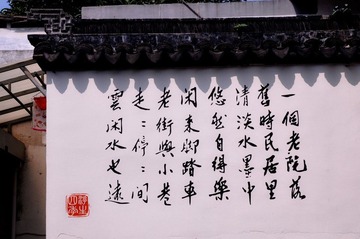 一個老院落
舊時民居里
清淡水墨中
悠然自得樂
閑來腳踏車
老街與小巷
走走停停間
雲閑水也遠